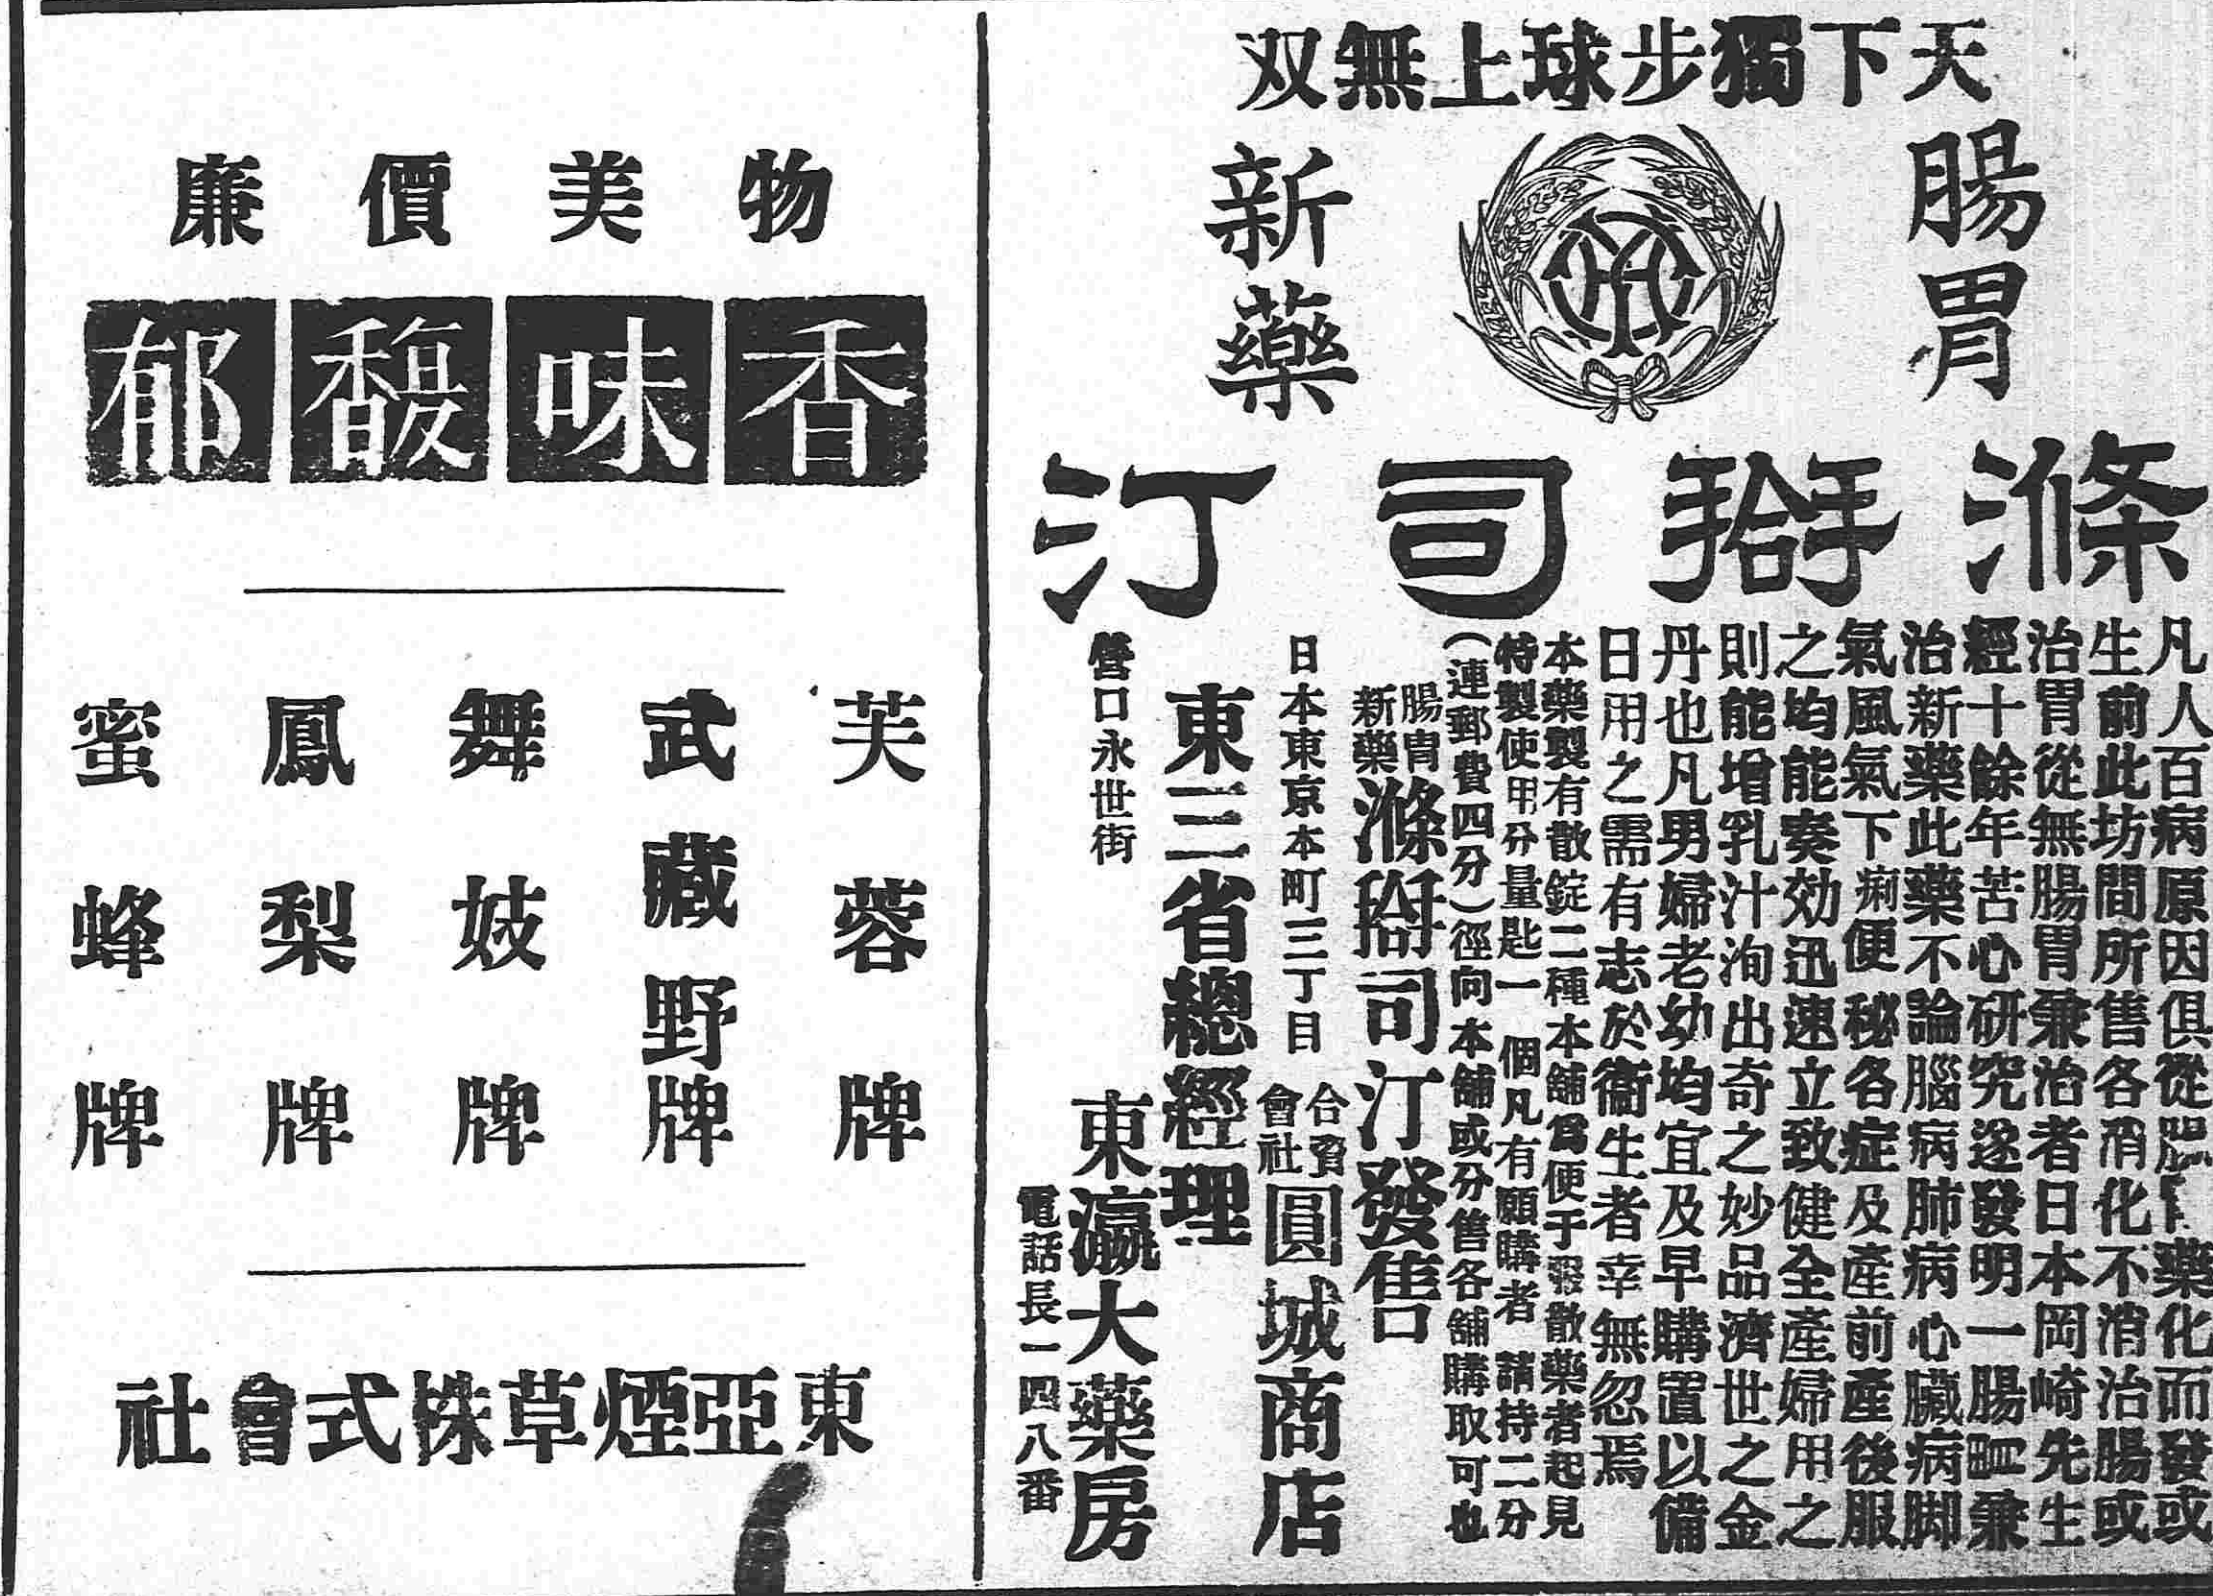 天下獨步球上無双
腸胃
新藥
滌㨷司汀
凡人百病原因俱從腸胃藥化而發或
生前此坊間所售各消化不消治腸或
治胃從無腸胃兼治者日本岡崎先生
經十餘年苦心研究遂發明一腸胃兼
治新藥此藥不論腦病肺病心臟病脚
氣風氣下痢便秘各症及產前產後服
之均能奏効迅速立致健全產婦用之
則能增乳汁洵出奇之妙品濟世之金
丹也凡男婦老幼均宜及早購置以備
日用之需有志於衞生者幸無忽焉
本藥製有散錠二種本舖爲便于服散藥者起見
特製使用分量匙一個凡有願購者請持二分
(連郵費四分)徑向本舖或分售各舖購取可也
腸胃
新藥
滌司汀發售
日本東京本町三丁目
合資
會社
圓城商店
東三省總經理
營口永世街
東瀛大藥房
電話長一四八番
物美價廉
香味馥郁
芙蓉牌
武藏野牌
舞妓牌
鳳梨牌
蜜蜂牌
東亞煙草株式會社